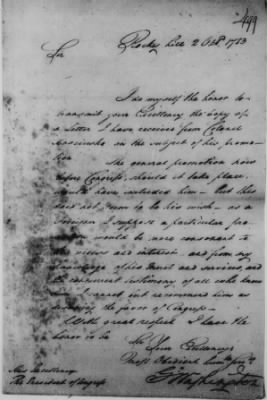 499
Rocky hill 2 Octr. 1783
Sir
I do myself the honor to
transmit your Excellency the copy of
a Letter I have received from Colonel
Kosciusko on the subject of his promo=
tion
The general promotion now
before Congress, should it take place,
would have included him — But this
does not seem to be his wish — as a
foreigner I suppose a particular pro
would be more consonant to
his views and interest — and from my
knowledge of his Merit and services, and
the concurrent testimony of all who know
him I cannot but recommend him as
deserving the favor of Congress —
With great respect I have the
honor to be
Sir Your Excellencys
Most Obedient
G: Washington
His Excellency
The President of Congress